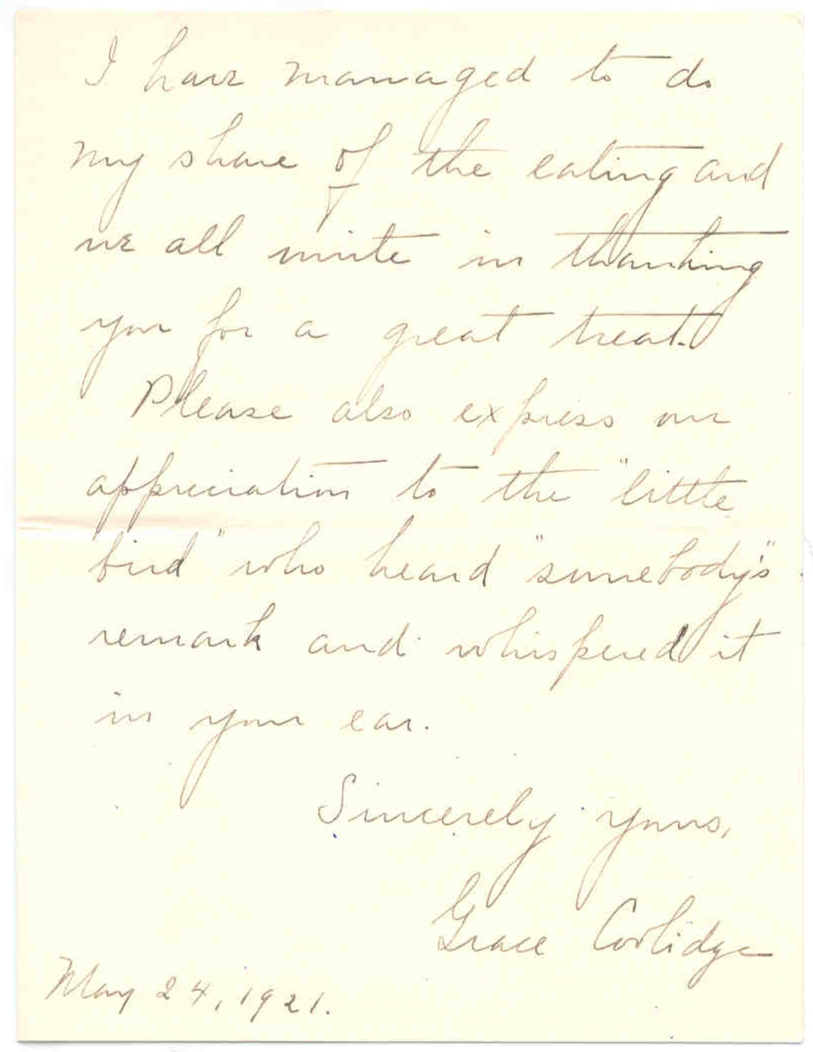 I have managed to do
my share of the eating and
we all unite in thanking
you for a great treat.
Please also express our
appreciation to the "little
bird" who heard "somebody's"
remark and whispered it
in your ear.
Sincerely yours,
Grace Coolidge
May 24, 1921.